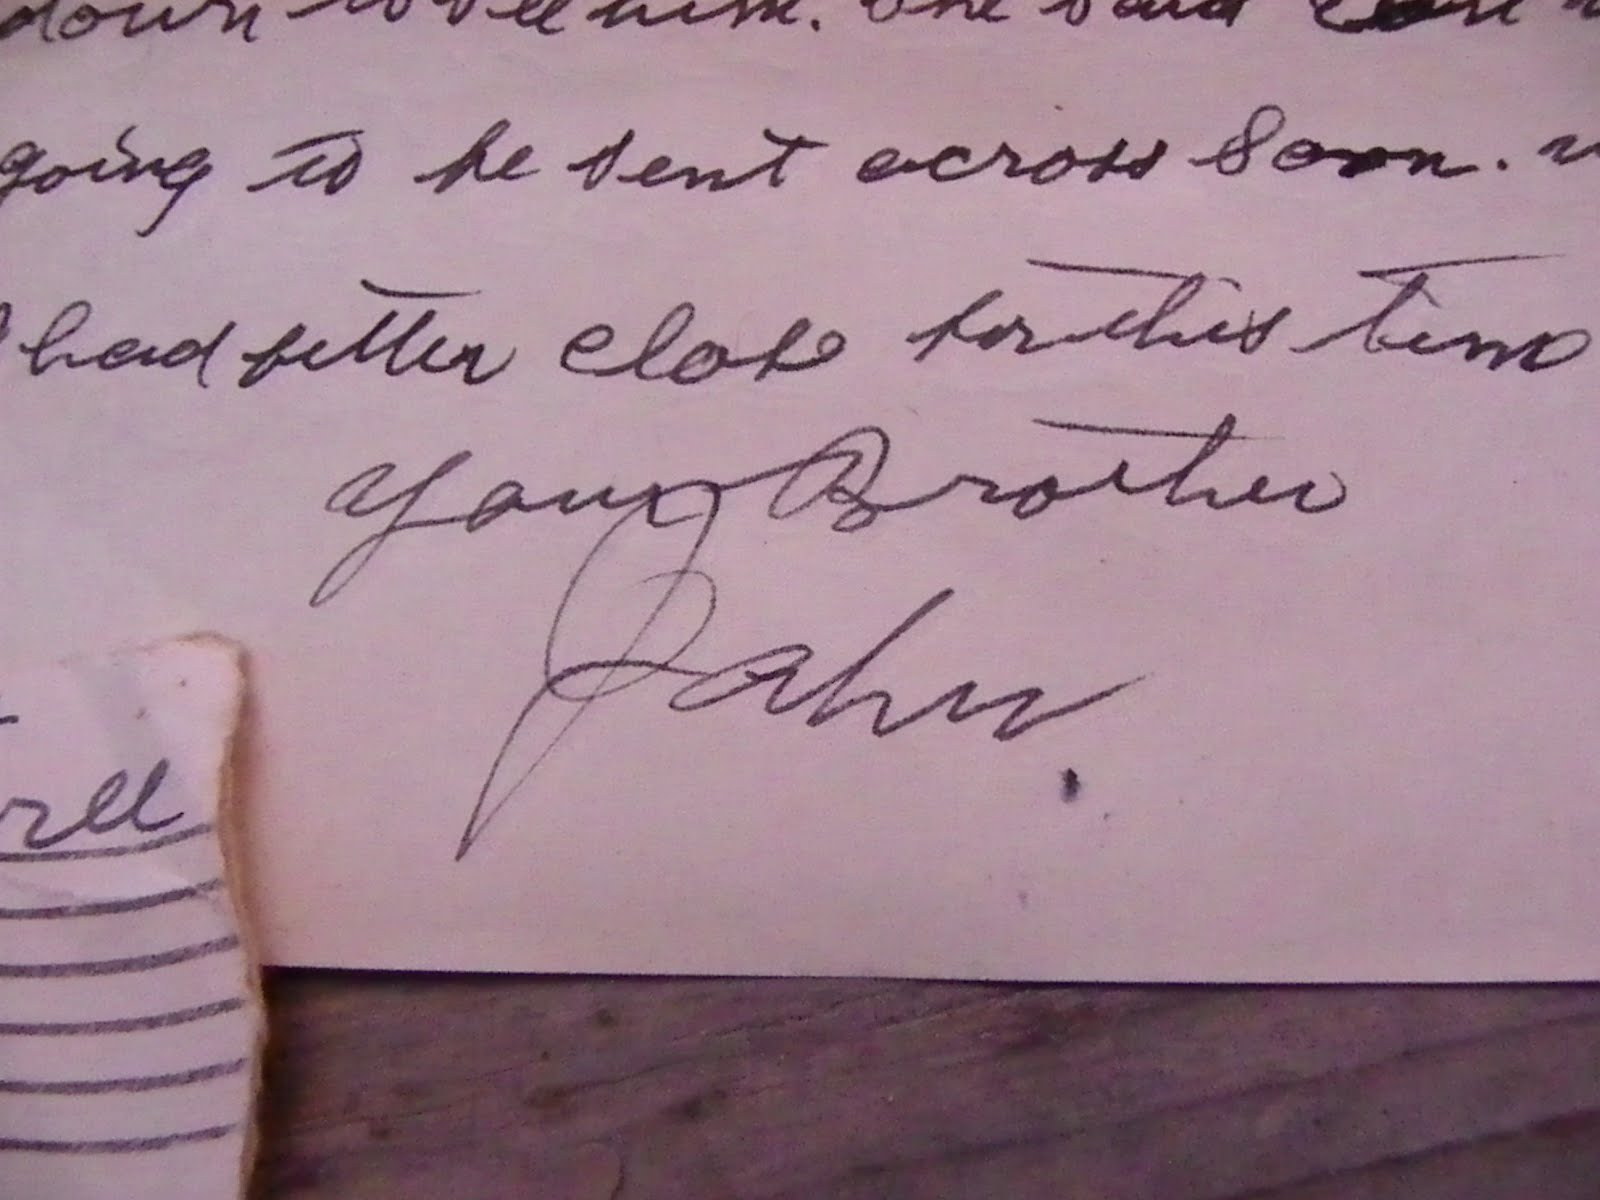 down to see him. She said
going to be sent across soon.
had better close for this time
Your Brother
John.
rll